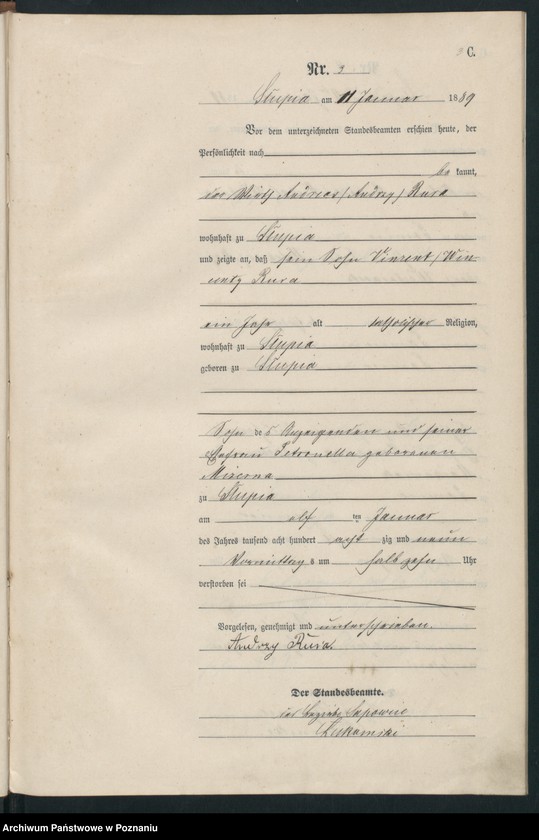 C.
Nr. 3
Słupia am 11 Januar 1889
Vor dem unterzeichneten Standesbeamten erschien heute, der
Persönlichkeit nach
be kannt,
der Wirth Andreas /Andrzy/ Rura
wohnhaft zu Słupia
und zeigte an, daß sein Sohn Vincent /Win-
centy Rura
ein Jahr alt katholischer Religion,
wohnhaft zu Słupia
geboren zu Słupia
Sohn des Anzeigenden und seiner
Ehefrau Petronella geborenen
zu Słupia
am elf ten Januar
des Jahres tausend acht hundert acht zig und neun
Vormittag s um halb zehn Uhr
verstorben sei
Vorgelesen, genehmigt und unterschrieben.
Andrzy Rura
Der Standesbeamte.
des Bezirks
Archiwum Państwowe w Poznaniu